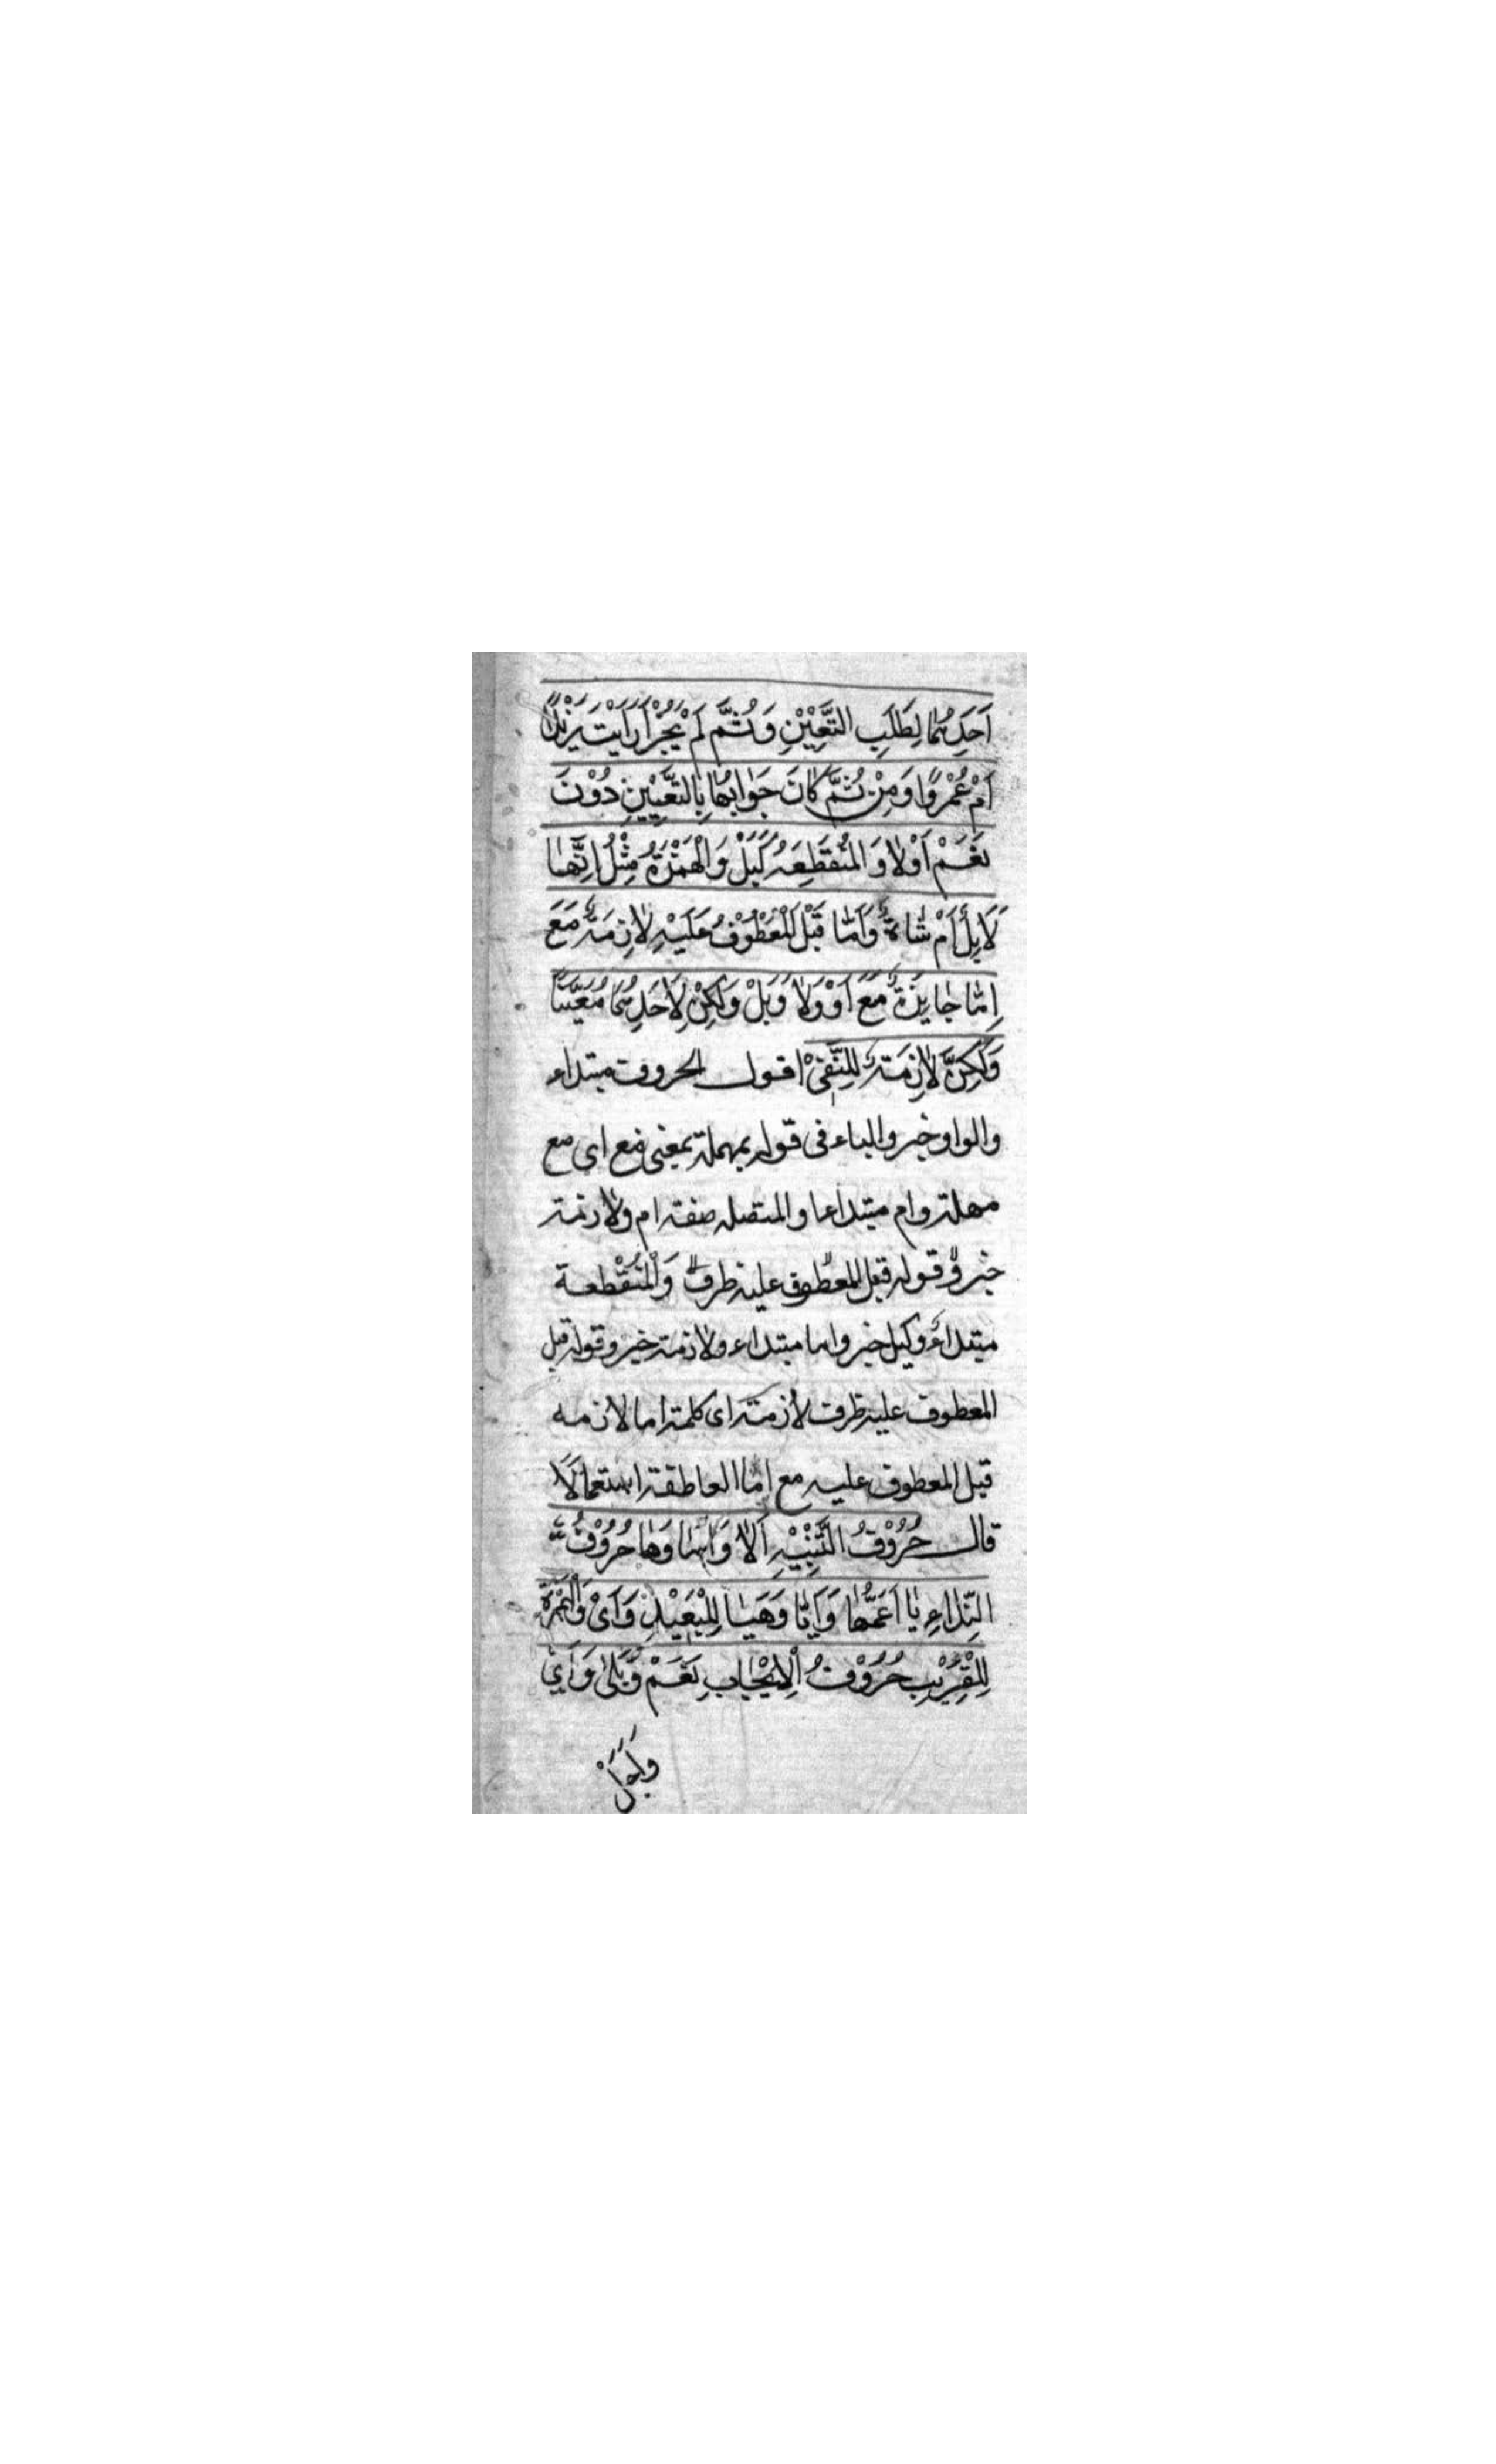 اَحَدِهِمَا لِطَلَبِ التَّعْيِيْنِ وَ ثُمَّ لَمْ يَجُزْ اَرَاَيْتَ زَيْدًا
اَمْ عُمْرًوا وَمِنْ ثُمَّ كَانَ جَوَابُهَا بِالتَّعْيِيْنِ دُوْنَ
نَعَمْ اَوْلَا وَ الْمُنْقَطِعَةُ كَبَلْ وَالْهَمْزَةُ مِثْلُ اِنَّهَا
لَاَبِلٌ اَمْ شَاةٌ وَاَمَّا قَبْلَ الْمَعْطُوْفِ عَلَيْهِ لَازِمَةٌ مَعَ
اِمَّا جَايِزَةٌ مَعَ اَوْ وَلَا وَبَلْ وَلٰكِنْ لِاَحَدِهِمَا مُعَيَّنًا
وَلٰكِنَّ لَازِمَةٌ لِلنَّفْىِ اقول الحروف مبتداء
والواو خبر والباء فى قوله بمهملة بمعنى مع اى مع
مهلة وام مبتداءا والمتصله صفته ام ولازمة
خبر وقوله قبل المعطوف عليه ظرف وَالْمُنْقَطعة
مبتداء وكبل خبر واما مبتداء ولازمة خبر وقوله قبل
المعطوف عليه ظرف لازمة اى كلمة اما لازمه
قبل المعطوف عليه مع اِمّا العاطفة استعمالًا
قال حُرُوْفُ التَّنْبِيْهِ اَلَا وَاَمَا وَهَا حُرُوْفُ
النِّدَاءِ يَا اَعَمُّهَا وَاَيَا وَهَيَا لِلْبَعِيْدِ وَاَىْ وَالْهَمْزَةُ
لِلْقَرِيْبِ حُرُوْفُ الْاِيْجَابِ نَعَمْ وَبَلٰى وَاِىْ
وَاَجَلْ